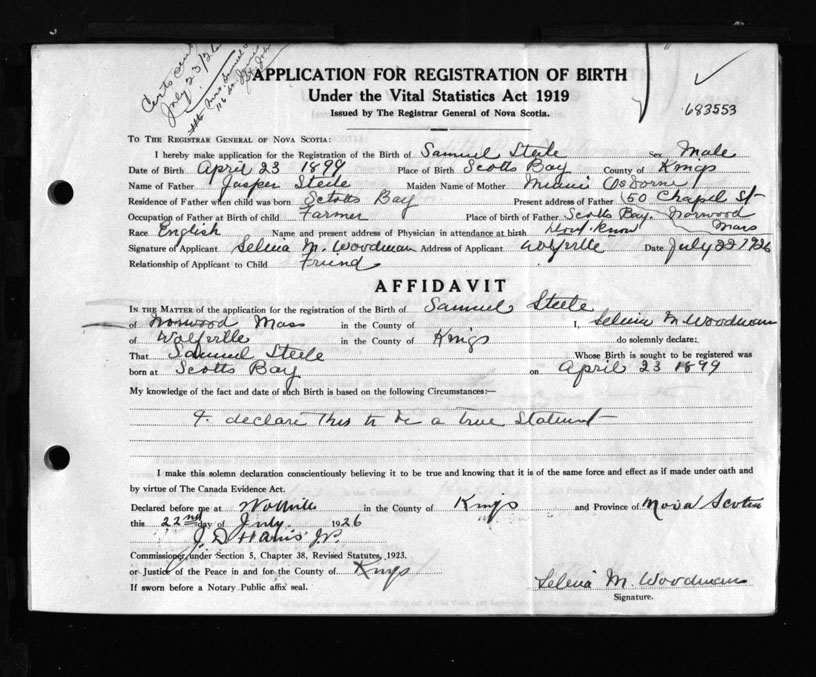 July 23/26
Mrs Samuel
APPLICATION FOR REGISTRATION OF BIRTH
Under the Vital Statistics Act 1919
Issued by The Registrar General of Nova Scotia.
683553
To The Registrar General of Nova Scotia:
I hereby make application for the Registration of the Birth of Samuel Steele Sex Male
Date of Birth April 23 1899 Place of Birth Scotts Bay County of Kings
Name of Father Jasper Steele Maiden Name of Mother Osborne
Residence of Father when child was born Scotts Bay Present address of Father 150 Chapel St
Occupation of Father at Birth of child Farmer Place of birth of Father Scotts Bay. Norwood
Mass
Race English Name and present address of Physician in attendance at birth Dont know
Signature of Applicant Selena M. Woodman Address of Applicant Wolfville Date July 22 1926
Relationship of Applicant to Child Friend
AFFIDAVIT
In the Matter of the application for the registration of the Birth of Samuel Steele
of Norwood Mass in the County of I, Selena M Woodman
of Wolfville in the County of Kings do solemnly declare:
That Samuel Steele Whose Birth is sought to be registered was
born at Scotts Bay on April 23 1899
My knowledge of the fact and date of such Birth is based on the following Circumstances:—
I declare this to be a true Statement
I make this solemn declaration conscientiously believing it to be true and knowing that it is of the same force and effect as if made under oath and
by virtue of The Canada Evidence Act.
Declared before me at Wolfville in the County of Kings and Province of Nova Scotia
this 22nd day of July 1926
J. D. Harris J.P.
Commissioner under Section 5, Chapter 38, Revised Statutes, 1923.
or Justice of the Peace in and for the County of Kings
If sworn before a Notary Public affix seal.
Selena M. Woodman
Signature.